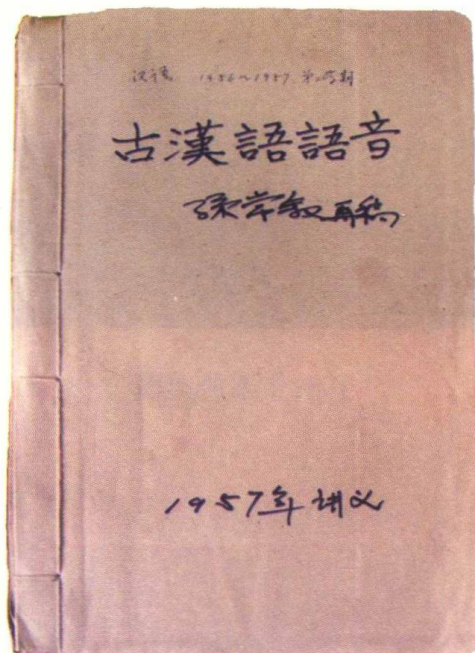 汉语 1956~1957 第二学期
古漢語語音
孫常敘再稿
1957年讲义